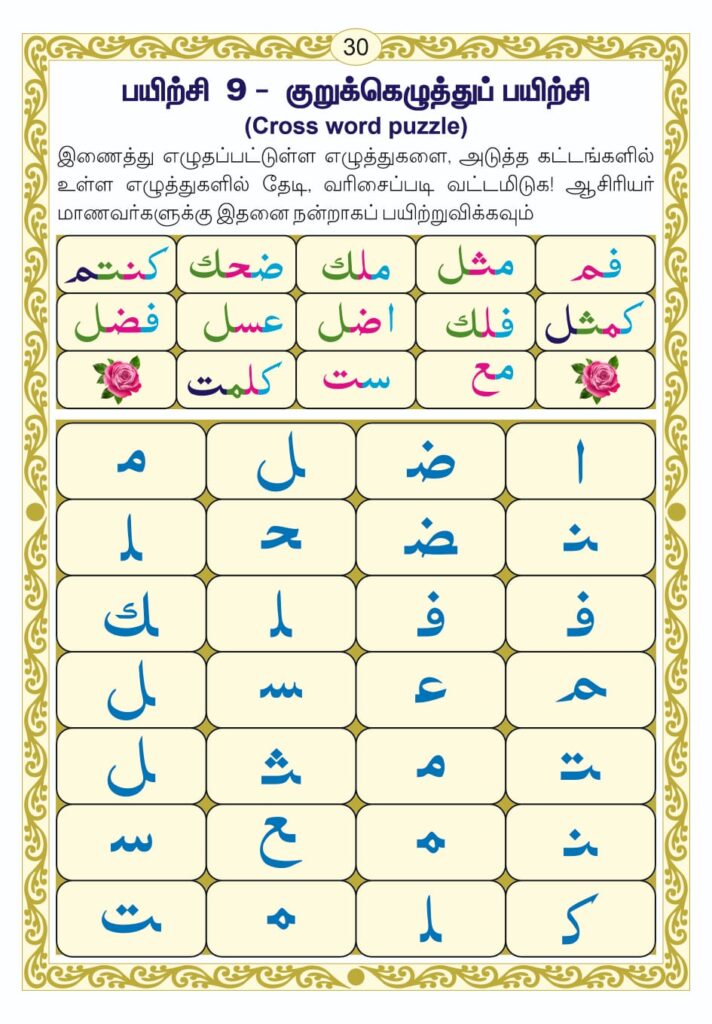 30
பயிற்சி 9 - குறுக்கெழுத்துப் பயிற்சி
(Cross word puzzle)
இணைத்து எழுதப்பட்டுள்ள எழுத்துகளை, அடுத்த கட்டங்களில்
உள்ள எழுத்துகளில் தேடி, வரிசைப்படி வட்டமிடுக! ஆசிரியர்
மாணவர்களுக்கு இதனை நன்றாகப் பயிற்றுவிக்கவும்
فم مثل ملك ضحك كنتم
كمثل فلك اضل عسل فضل
مع ست كلمت
ا ضـ ـل مـ
ـنـ ـضـ ـحـ ـلـ
فـ فـ ـلـ ـك
ـم عـ ـسـ ـل
ـتـ مـ ـثـ ـل
ـنـ ـمـ ـع سـ
كـ ـلـ ـمـ ـت